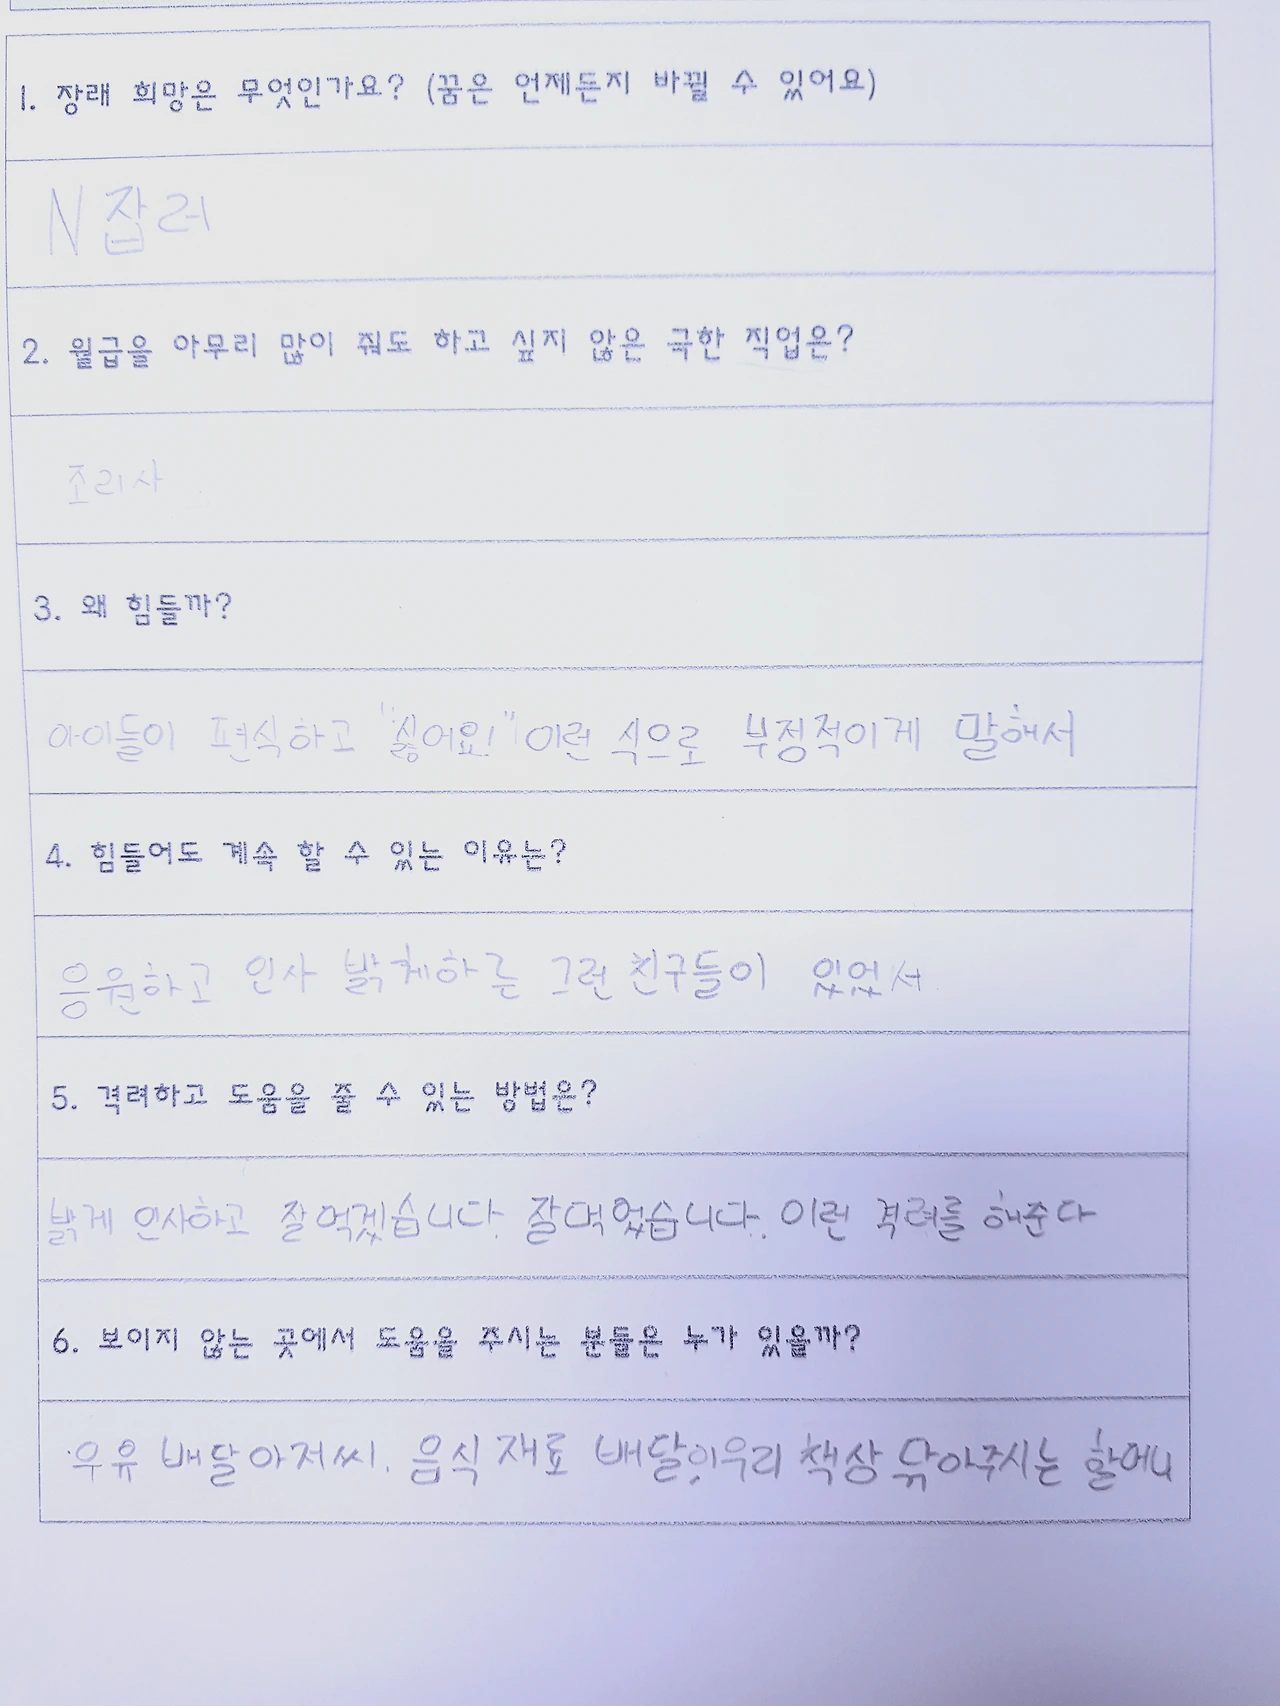 1. 장래 희망은 무엇인가요? (꿈은 언제든지 바뀔 수 있어요)
N잡러
2. 월급을 아무리 많이 줘도 하고 싶지 않은 극한 직업은?
조리사
3. 왜 힘들까?
아이들이 편식하고 "싫어요!" 이런 식으로 부정적이게 말해서
4. 힘들어도 계속 할 수 있는 이유는?
응원하고 인사 밝게하는 그런 친구들이 있었서
5. 격려하고 도움을 줄 수 있는 방법은?
밝게 인사하고 잘 먹겠습니다. 잘먹었습니다. 이런 격려를 해준다
6. 보이지 않는 곳에서 도움을 주시는 분들은 누가 있을까?
우유 배달아저씨. 음식 재료 배달이, 우리 책상 닦아주시는 할머니